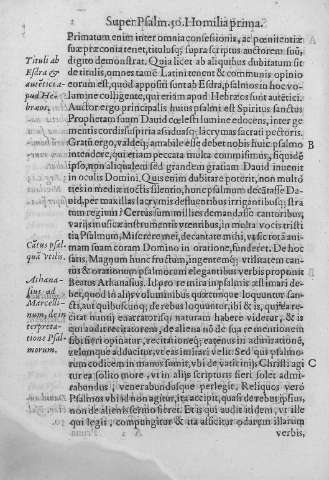 Super Psalm. 50. Homilia prima.
Primatum enim inter omnia confessionis, ac pœnitentiæ
suæ præconia tenet, titulusq; supra scriptus auctorem suũ,
Tituli ab
digito demonstrat. Quia licet ab aliquibus dubitatum sit
Esdra &
de titulis, omnes tamē Latini tenent & communis opinio
eorum est, quòd appositi sunt ab Esdra, psalmos in hoc vo-
pud He-
lumine colligente, qui etiam apud Hebræos sunt autētici.
bræos.
Auctor ergo principalis huius psalmi est Spiritus sanctus
Prophetam suum Dauid cœlesti lumine edocens, inter ge-
mentis cordis suspiria asiduasq; lacrymas sacrati pectoris.
B
Gratũ ergo, valdeq; amabile esse debet nobis huic psalmo
intendere, qui etiam peccata multa commisimus, siquidē
ipso, non aliquam sed grandem gratiam Dauid inuenit
in oculis Domini. Quis enim dubitare poterit, non multo
ties in mediæ noctis silentio, hunc psalmum decātasse Da-
uid, per maxillas lacrymis defluentibus irrigantibusq; stra
tum regium? Certus sum millies demandasse cantoribus,
varijs musicæ instrumentis vtentibus, in multa vocis tristi
Cātus psal.
tia Psalmum, Miserere mei, decantate mihi, vt sic totã ani-
quã vtilis.
mam suam coram Domino in oratione, funderet. De hoc
sanè, Magnum hunc fructum, ingentemq; vtilitatem can-
tus & orationum psalmorũ elegantibus verbis proponit
Athana-
Beatus Athanasius. Id pro re mira in psalmis æstimari de-
sius ad
bet, quòd in alijs voluminibus quæcunque loquuntur san-
Marcell-
cti, & de quibuscunq; de rebus loquuntur, ibi & is,
num, de in
catur nuntij enarratorisq; naturam habere videtur, & is
terpreta-
qui audit recitatorem, de aliena nō de sua re mentionem
tione Psal-
sibi fieri opinatur, recitationeq; eatenus in admirationē,
morum.
velemque adducitur, vt eas imitari velit. Sed qui psalmo-
C
rum codicem in manus sumit, vbi de vaticinijs Christi agi
tur ea solito more, vt in alijs scripturis fieri solet admi-
rabundus, venerabundusque perlegit. Reliquos verò
Psalmos vbi id non agitur, ita accipit, quasi de rebus ipsius,
non de alienis sermo fieret. Et is qui audit itidem, vt ille
qui legit, compungitur & ita afficitur
verbis,